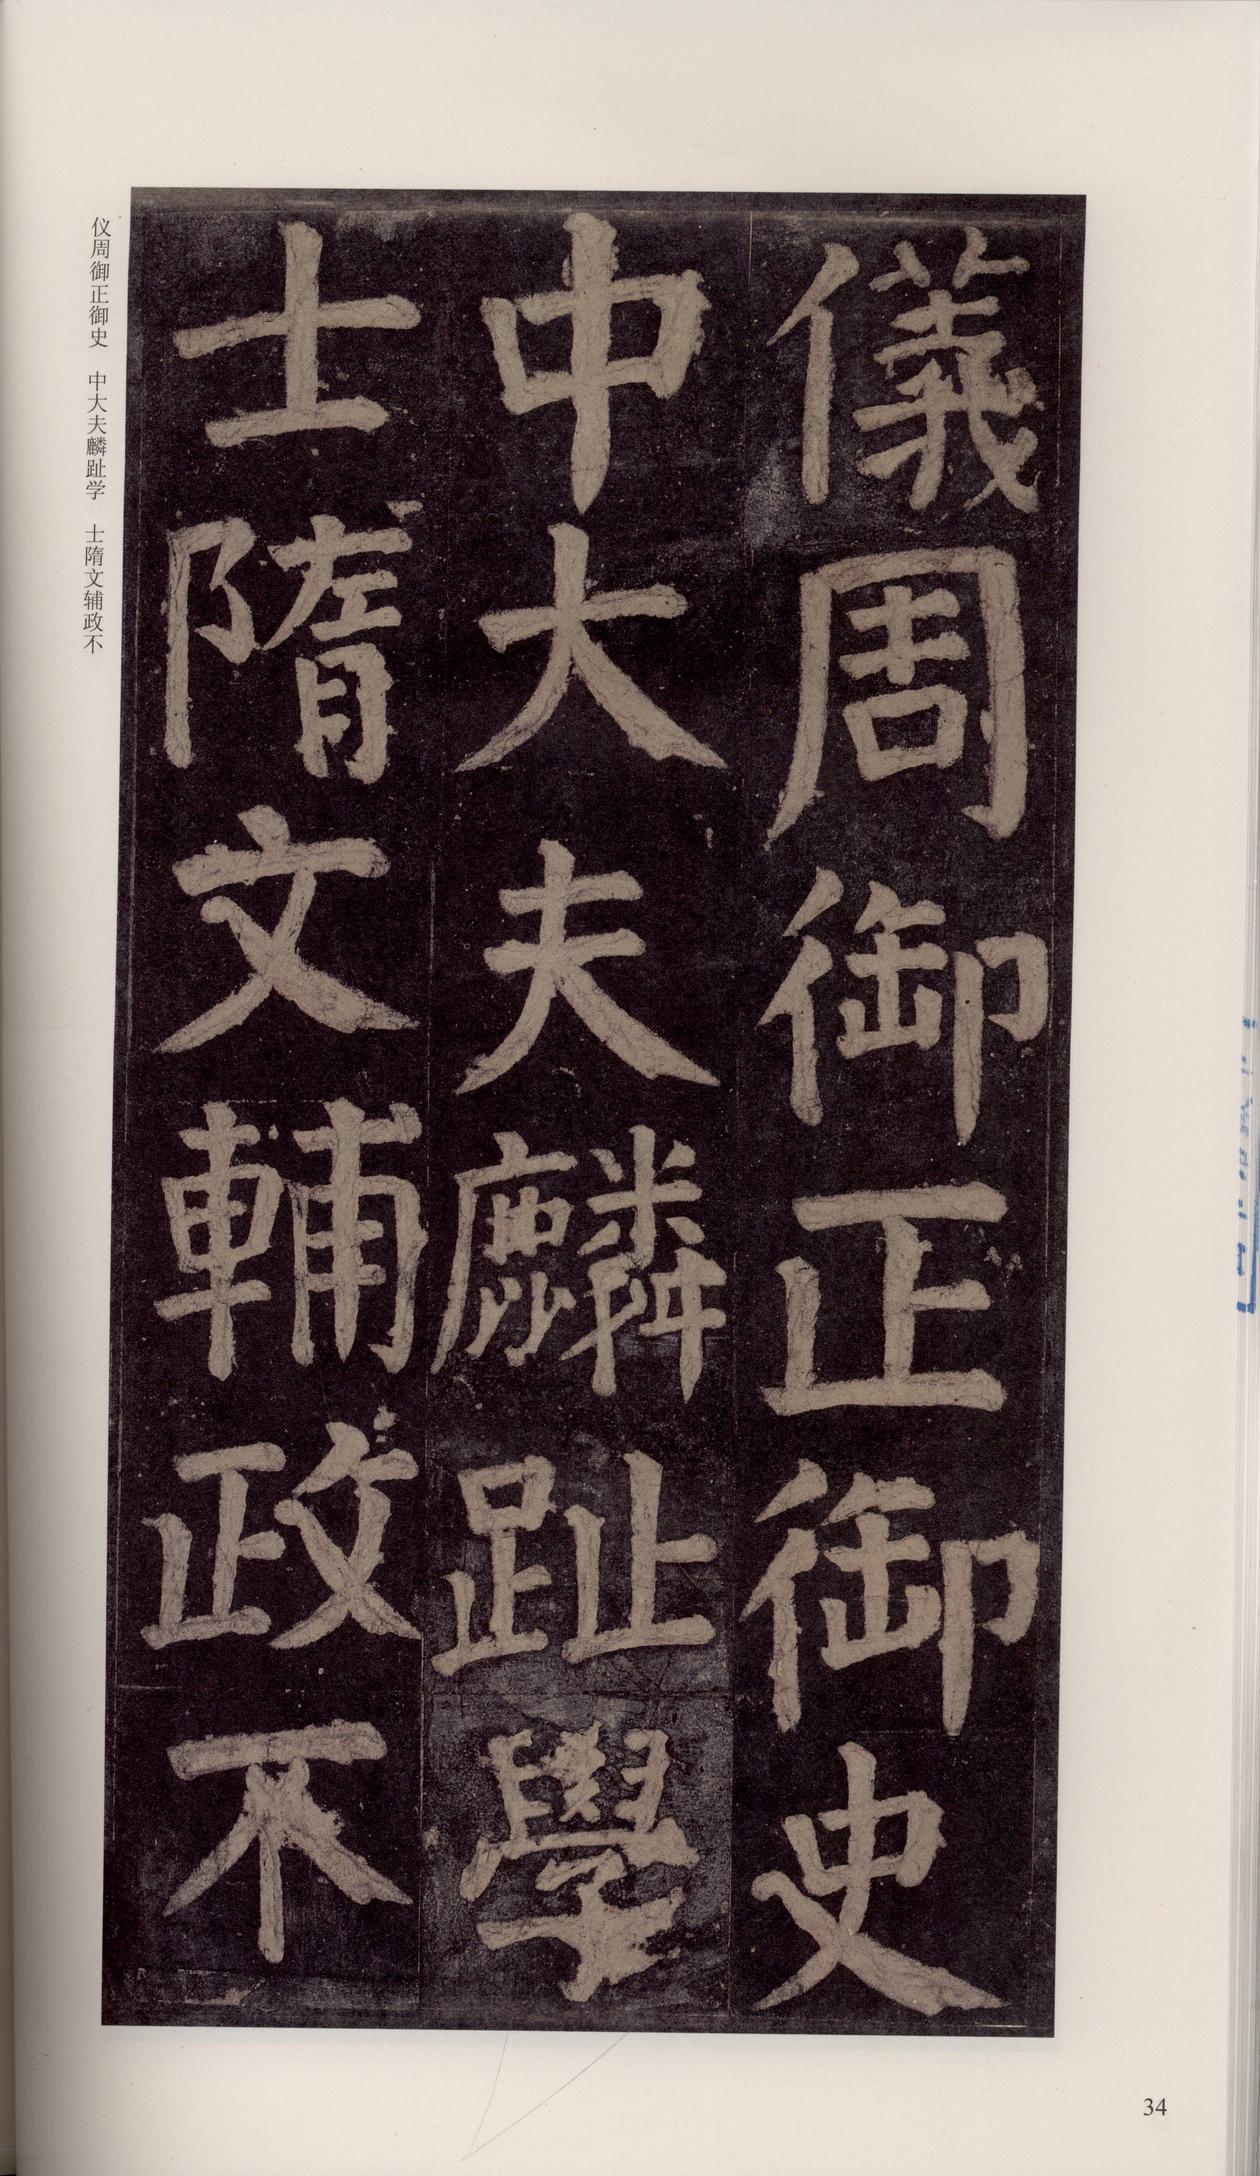 儀周御正御史
中大夫麟趾學
士隋文輔政不
仪周御正御史　中大夫麟趾学　士隋文辅政不
34